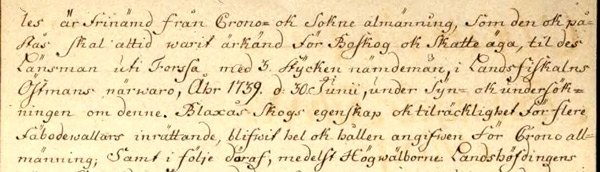 les är Frinämd från Crono= ok Sokne almänning, Som den ok på-
stås skal altid warit ärkänd för Boskog ok Skatte äga, til des
Länsman uti Forssa med 3. Stycken nämdemän, i Landsfiskalns
Östmans närwaro, Åhr 1739. d: 30 Junii, under Syn- ok undersök-
ningen om denne. Blaxås Skogs egenskap ok tilräcklighet för flere
Fäbodewallars inrättande, blifwit hel ok hållen angifwen för Crono all-
männing; Samt i följe däraf, medelst Högwälborne Landshöfdingens